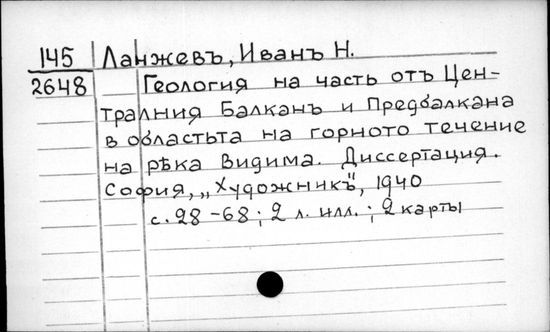 145 Ланжевъ, Иванъ Н.
2648 Геология на часть отъ Цен-
тралния Балканъ и Предбалкана
в областьта на горното течение
на рѣка Видима. Диссертация.
София, „Художникъ", 1940
с. 28-68; 2 л. илл.; 2 карты